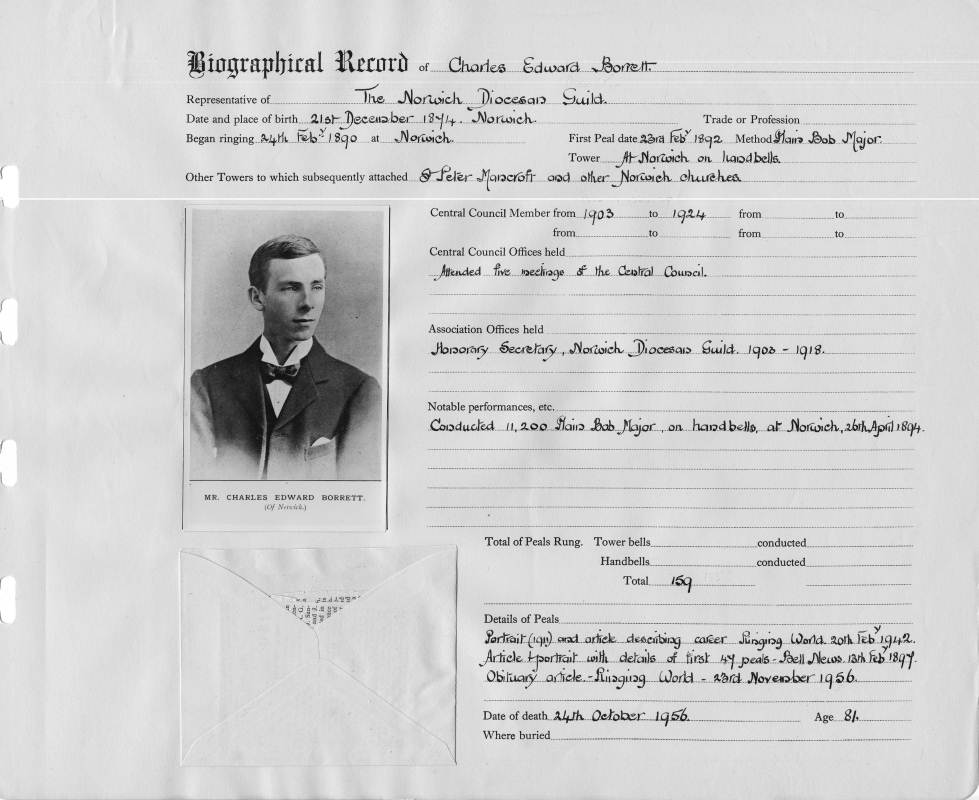 Biographical Record of Charles Edward Borrett.
Representative of The Norwich Diocesan Guild.
Date and place of birth 21st December 1874. Norwich. Trade or Profession
Began ringing 24th Febʸ 1890 at Norwich. First Peal date 23rd Febʸ 1892 Method Plain Bob Major.
Tower At Norwich on handbells.
Other Towers to which subsequently attached St Peter Mancroft and other Norwich churches.
Central Council Member from 1903 to 1924 from to
from to from to
Central Council Offices held
Attended five meetings of the Central Council.
Association Offices held
Honorary Secretary, Norwich Diocesan Guild. 1903 - 1918.
Notable performances, etc.
Conducted 11,200 Plain Bob Major, on handbells, at Norwich, 26th April 1894.
MR. CHARLES EDWARD BORRETT.
(Of Norwich.)
Total of Peals Rung. Tower bells conducted
Handbells conducted
Total 159
Details of Peals
Portrait (1911) and article describing career Ringing World. 20th Febʸ 1942.
Article & portrait with details of first 47 peals - Bell News. 13th Febʸ 1897.
Obituary article. - Ringing World - 23rd November 1956.
Date of death 24th October 1956. Age 81.
Where buried